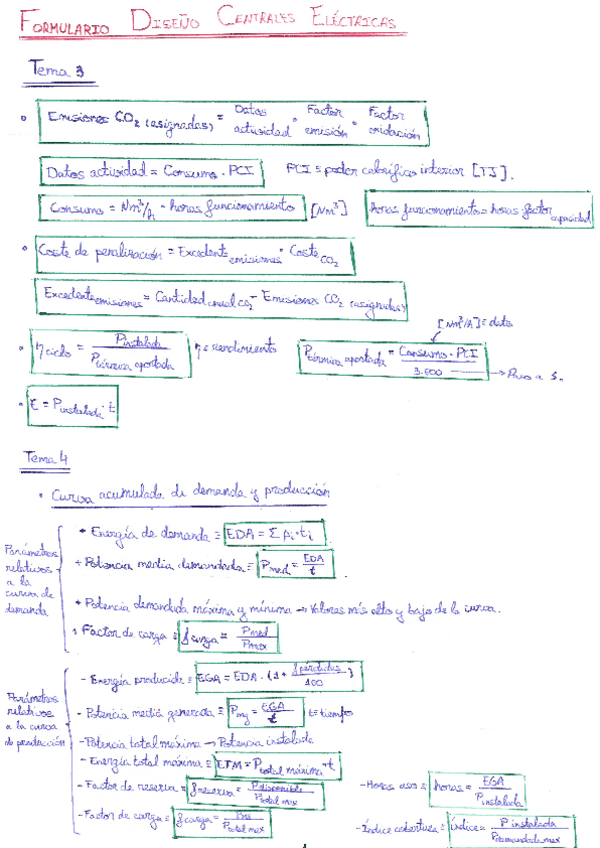 FORMULARIO DISEÑO CENTRALES ELÉCTRICAS
Tema 3
• Emisiones CO2 (asignadas) = Datos actividad · Factor emisión · Factor oxidación
Datos actividad = Consumo · PCI PCI ≡ poder calorífico inferior [TJ].
Consumo = Nm³/h · horas funcionamiento [Nm³] horas funcionamiento = horas · factor capacidad
• Coste de penalización = Excedente emisiones · Coste CO2
Excedente emisiones = Cantidad anual CO2 - Emisiones CO2 (asignadas)
[Nm³/h] ≡ dato
• η ciclo = P instalada / P térmica aportada η ≡ rendimiento P térmica aportada = Consumo · PCI / 3.600 → Paso a s.
• E = P instalada · t
Tema 4
• Curva acumulada de demanda y producción
Parámetros relativos a la curva de demanda
• Energía de demanda ≡ EDA = Σ Pi · ti
• Potencia media demandada ≡ Pmed = EDA / t
• Potencia demandada máxima y mínima → Valores más alto y bajo de la curva.
• Factor de carga ≡ f carga = Pmed / Pmax
Parámetros relativos a la curva de producción
- Energía producida ≡ EGA = EDA · (1 + f pérdidas / 100)
- Potencia media generada ≡ Pmg = EGA / t t ≡ tiempo
- Potencia total máxima → Potencia instalada
- Energía total máxima ≡ ETM = P total máxima · t
- Factor de reserva ≡ f reserva = P disponible / P total max - Horas uso ≡ horas = EGA / P instalada
- Factor de carga ≡ f carga = / P total max - Índice cobertura ≡ índice = P instalada / P demandada max